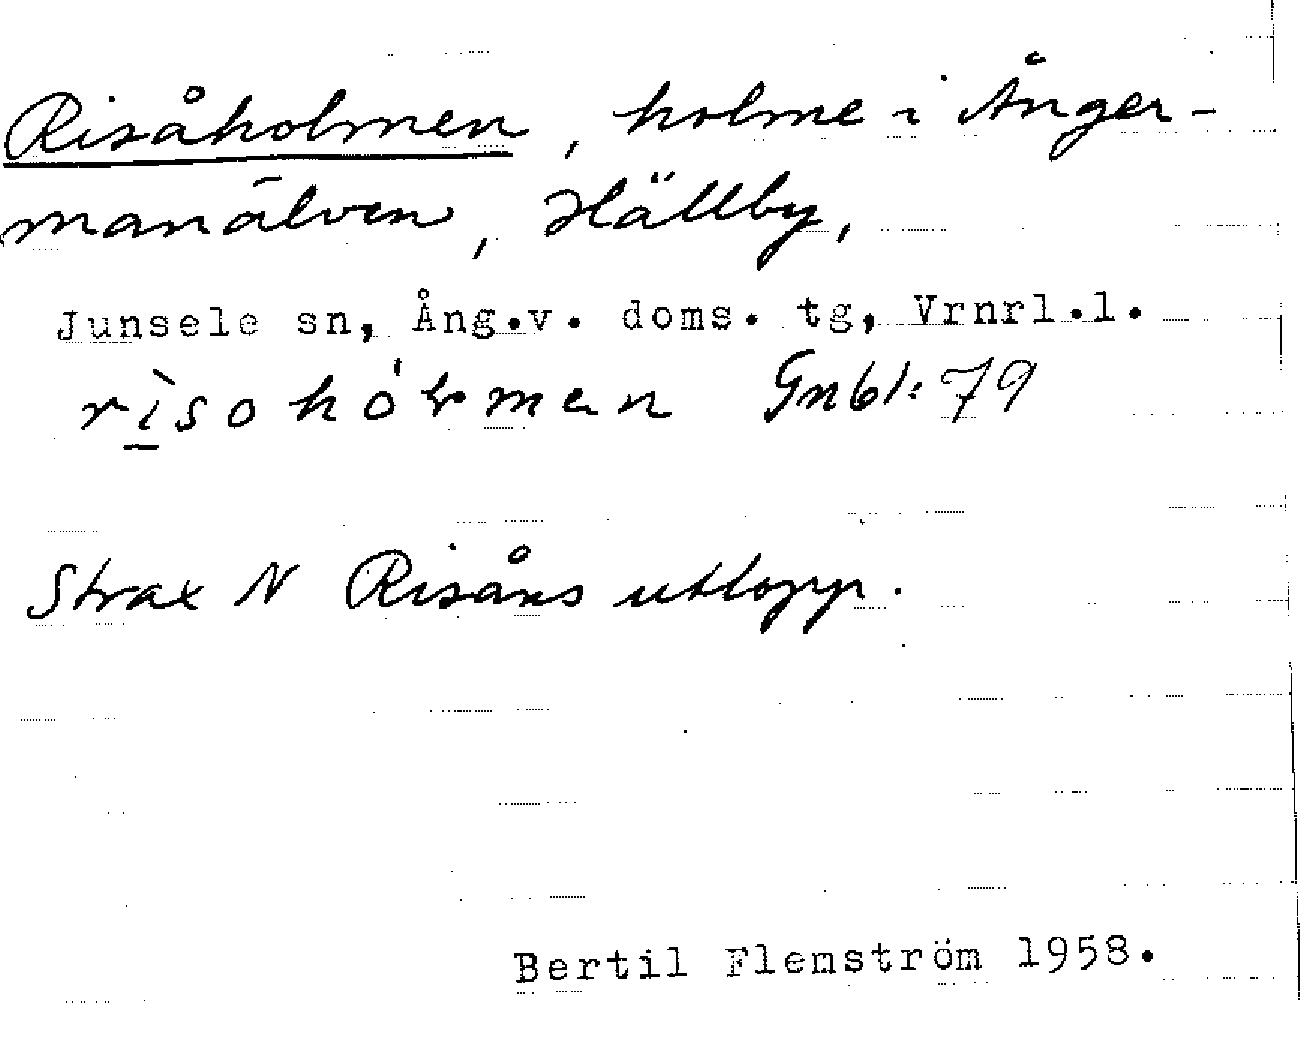 Risåholmen, holme i Ånger-
manälven, Hällby,
Junsele sn, Ång.v. doms. tg, Vrnrl.l.
Gnbl: 79
Strax N Risåns utlopp.
Bertil Flemström 1958.